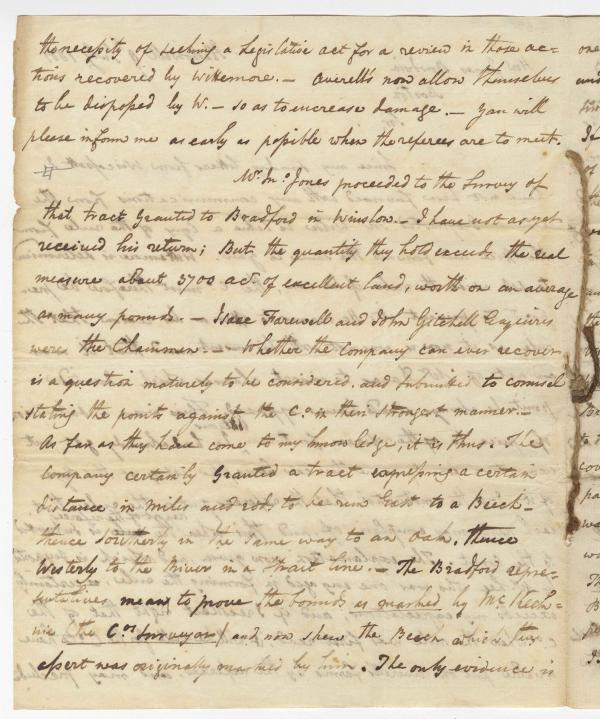 the necessity of seeking a Legislative act for a review in those ac=
tions recovered by Wittemore. — Averell's now allow themselves
to be disposed by W. — so as to increase damage. — You will
please inform me as early as possible when the referees are to meet.
Mr. Jno. Jones proceeded to the Survey of
that tract Granted to Bradford in Winslow. — I have not as yet
received his return; But the quantity they hold exceeds the real
measure about 3700 acs. of excellent land, worth on an average
as many pounds. — Isaac Farewell and John Getchell Esquires
were the Chainmen. — Whether the Company can ever recover
is a question maturely to be considered, and submitted to counsel
stating the points against the Co. in their strongest manner. —
As far as they have come to my knowledge, it is thus. The
Company certainly Granted a tract expressing a certain
distance in Miles and rods to be run East to a Beech —
thence Southerly in the same way to an Oak, thence
Westerly to the River in a strait line. — The Bradford repre=
sentatives mean to prove the bounds as marked by McKech=
nie (the Cos. Surveyor) and now shew the Beech which they
assert was originally marked by him. The only evidence is
one
of
the
cov
pa
wa
Th
B